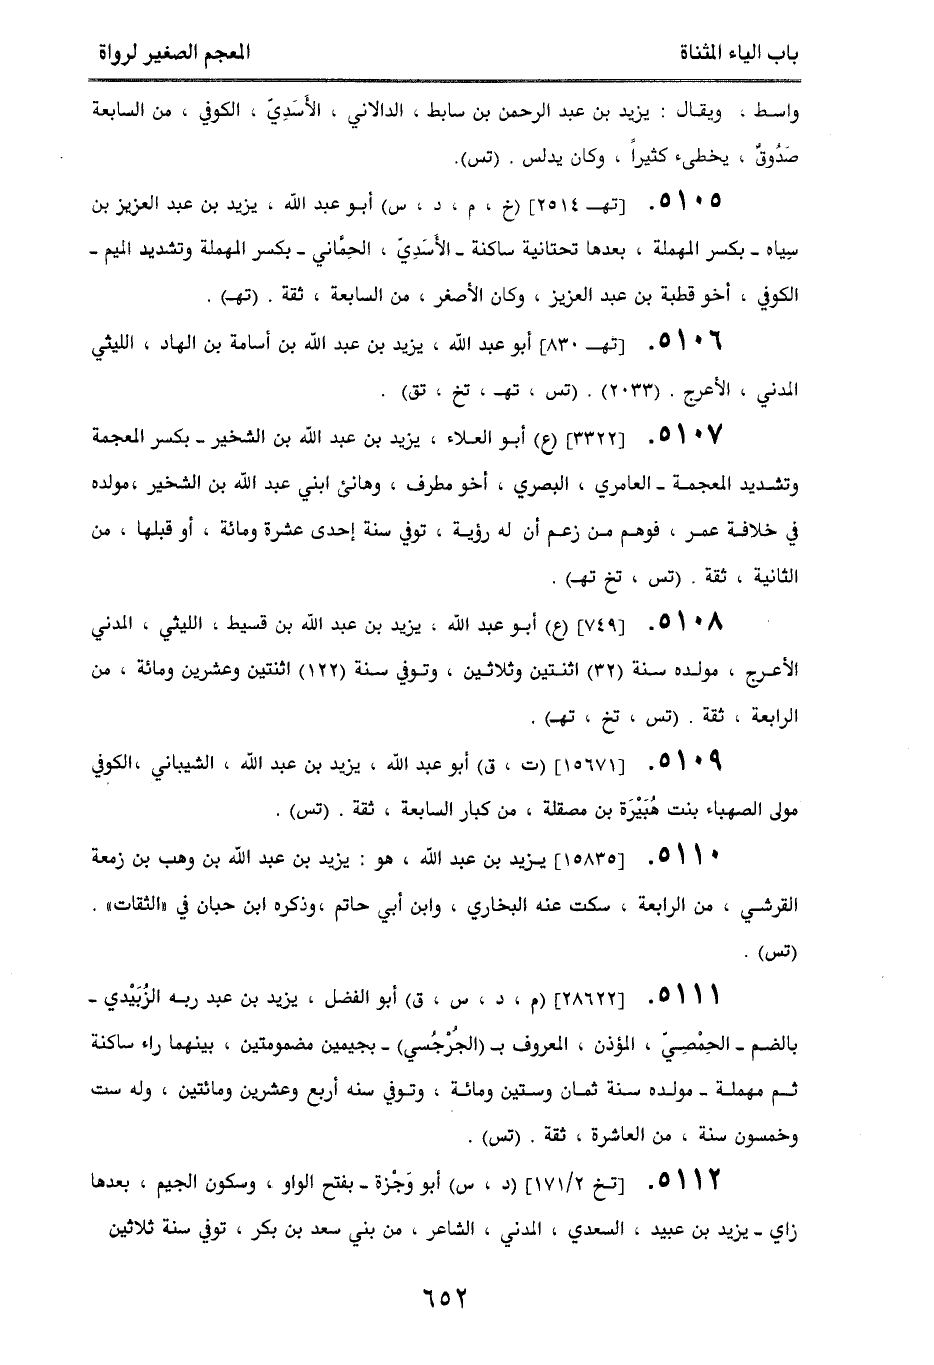 باب الياء المثناة
المعجم الصغير لرواة
واسط ، ويقال : يزيد بن عبد الرحمن بن سابط ، الدالاني ، الأَسَدِيّ ، الكوفي ، من السابعة
صَدُوقٌ ، يخطىء كثيراً ، وكان يدلس . (تس).
٥١٠٥. [تهـ ٢٥١٤] (خ ، م ، د ، س) أبو عبد الله ، يزيد بن عبد العزيز بن
سِياه ـ بكسر المهملة ، بعدها تحتانية ساكنة ـ الأَسَدِيّ ، الحِمَّاني ـ بكسر المهملة وتشديد الميم ـ
الكوفي ، أخو قطبة بن عبد العزيز ، وكان الأصغر ، من السابعة ، ثقة . (تهـ) .
٥١٠٦. [تهـ ٨٣٠] أبو عبد الله ، يزيد بن عبد الله بن أسامة بن الهاد ، الليثي
المدني ، الأعرج . (٢٠٣٣) . (تس ، تهـ ، تخ ، تق) .
٥١٠٧. [٣٣٢٢] (ع) أبو العلاء ، يزيد بن عبد الله بن الشخير ـ بكسر المعجمة
وتشديد المعجمة ـ العامري ، البصري ، أخو مطرف ، وهانئ ابني عبد الله بن الشخير ،مولده
في خلافة عمر ، فوهم من زعم أن له رؤية ، توفي سنة إحدى عشرة ومائة ، أو قبلها ، من
الثانية ، ثقة . (تس ، تخ تهـ) .
٥١٠٨. [٧٤٩] (ع) أبو عبد الله ، يزيد بن عبد الله بن قسيط ، الليثي ، المدني
الأعرج ، مولده سنة (٣٢) اثنتين وثلاثين ، وتوفي سنة (١٢٢) اثنتين وعشرين ومائة ، من
الرابعة ، ثقة . (تس ، تخ ، تهـ) .
٥١٠٩. [١٥٦٧١] (ت ، ق) أبو عبد الله ، يزيد بن عبد الله ، الشيباني ،الكوفي
مولى الصهباء بنت هُبَيْرَة بن مصقلة ، من كبار السابعة ، ثقة . (تس) .
٥١١٠. [١٥٨٣٥] يزيد بن عبد الله ، هو : يزيد بن عبد الله بن وهب بن زمعة
القرشي ، من الرابعة ، سكت عنه البخاري ، وابن أبي حاتم ،وذكره ابن حبان في «الثقات» .
(تس) .
٥١١١. [٢٨٦٢٢] (م ، د ، س ، ق) أبو الفضل ، يزيد بن عبد ربه الزُبَيْدي ـ
بالضم ـ الحِمْصِيّ ، المؤذن ، المعروف بـ (الجُرْجُسي) ـ بجيمين مضمومتين ، بينهما راء ساكنة
ثم مهملة ـ مولده سنة ثمان وستين ومائة ، وتوفي سنه أربع وعشرين ومائتين ، وله ست
وخمسون سنة ، من العاشرة ، ثقة . (تس) .
٥١١٢. [تخ ١٧١/٢] (د ، س) أبو وَجْزة ـ بفتح الواو ، وسكون الجيم ، بعدها
زاي ـ يزيد بن عبيد ، السعدي ، المدني ، الشاعر ، من بني سعد بن بكر ، توفي سنة ثلاثين
٦٥٢